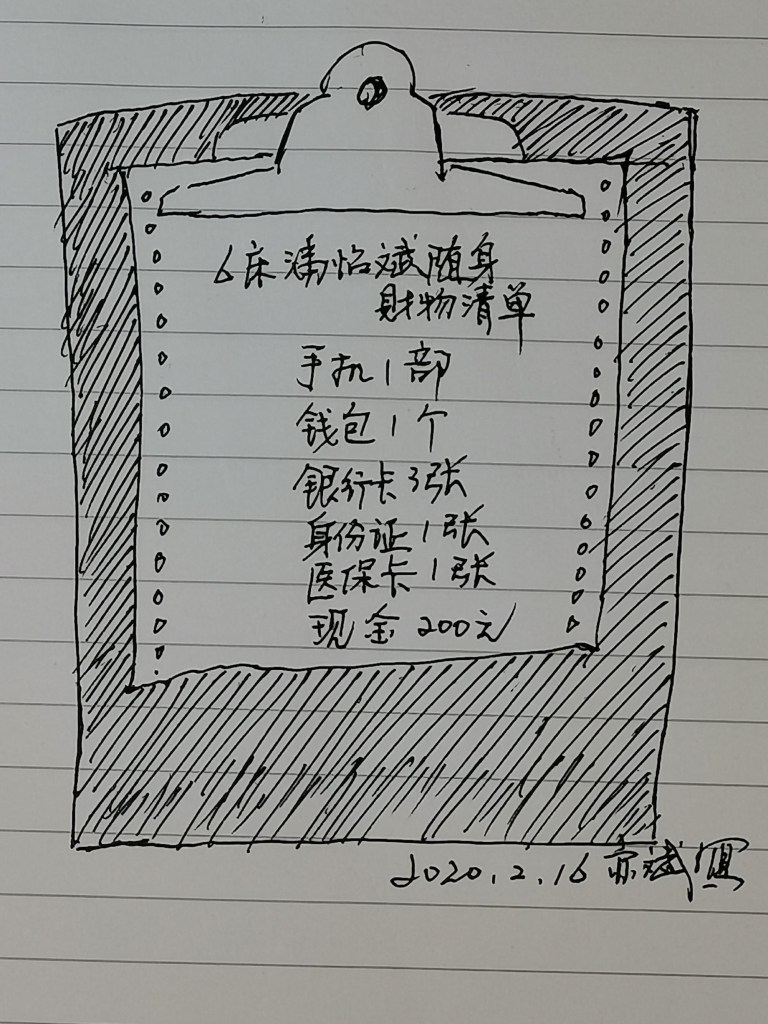 6床潘怡斌随身
财物清单
手机1部
钱包1个
银行卡3张
身份证1张
医保卡1张
现金200元
2020.2.16 亦斌